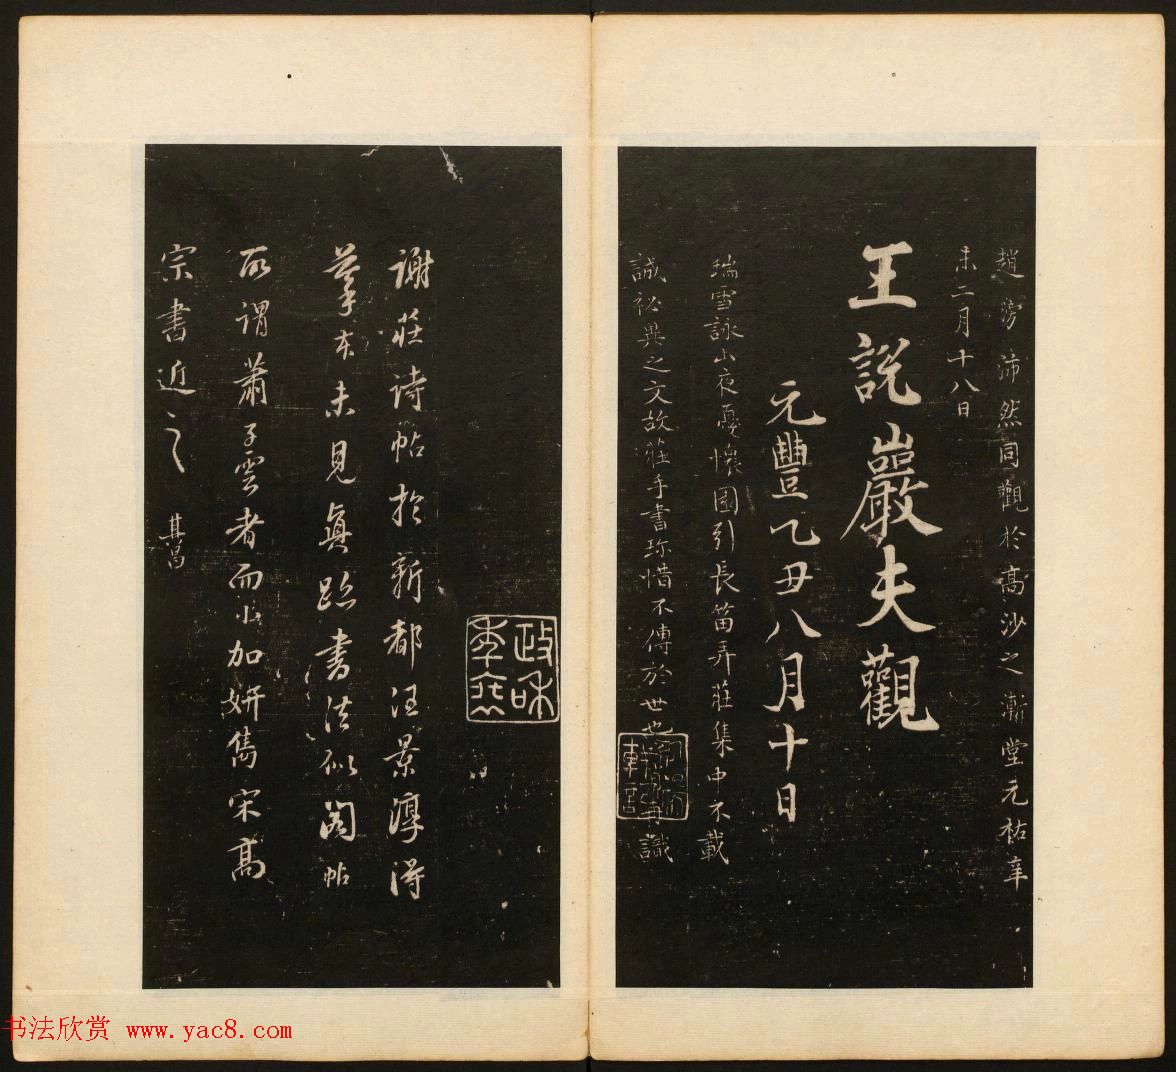 趙 沛然同觀於高沙之漸堂元祐辛
未二月十八日
王說巖夫觀
元豐乙丑八月十日
瑞雪詠山夜憂懷園引長笛弄莊集中不載
誠祕異之文故莊手書珍惜不傳於世也 識
政和
謝莊诗帖於新都汪景淳得
摹本未見真跡書法似阁帖
所謂蕭子雲者而小加妍雋宋髙
宗書近之 其昌
书法欣赏 www.yac8.com